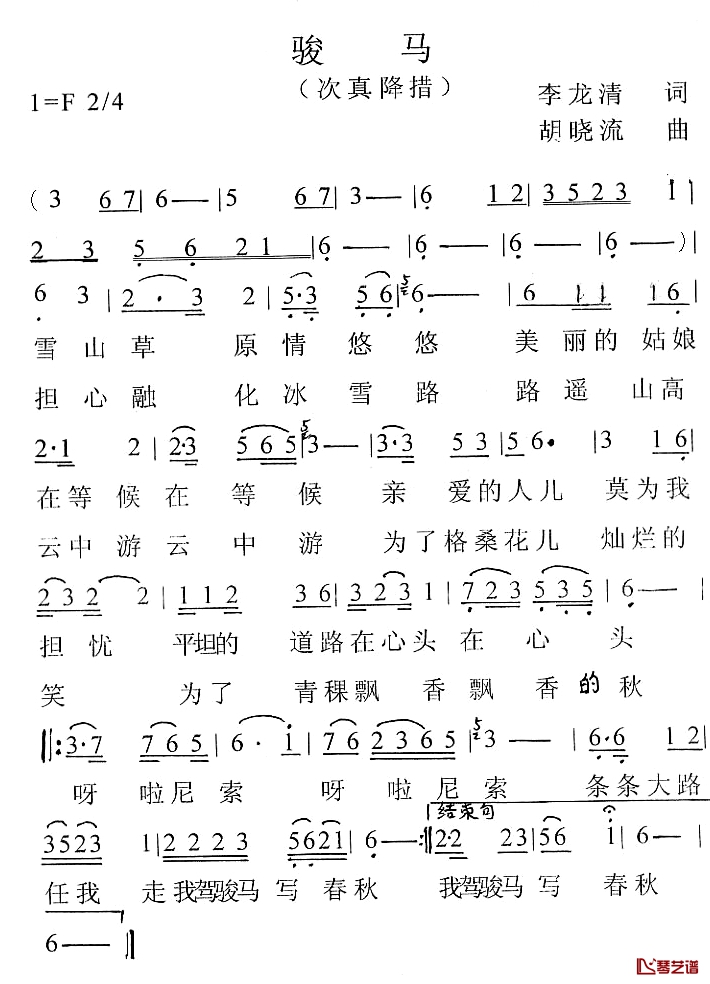 骏 马
（次真降措）
1=F 2/4
李龙清 词
胡晓流 曲
（3 67| 6—|5 67| 3—|6 12|3523 1|
2 3 5 6 21|6—|6—|6—|6—）|
6 3|2·3 2|5·3 56|6—|6 11 16|
雪山草 原情悠悠 美丽的姑娘
担心融 化冰雪路 路遥山高
2·1 2|2·3 565|3—|3·3 53|56·|3 16|
在等候在等候 亲爱的人儿莫为我
云中游云中游 为了格桑花儿灿烂的
232 2|112 36|323 1|723 535|6—|
担忧 平坦的 道路在心头在心头
笑 为了 青稞飘香飘香的秋
‖:3·7 765|6·i|76 2365|3—|6·6 12|
呀 啦尼索 呀啦尼索 条条大路
结束句
3523 1|2223 5621|6—:‖2·2 23|56 1|
任我 走我驾骏马写春秋 我驾骏马写春秋
6—‖
琴艺谱